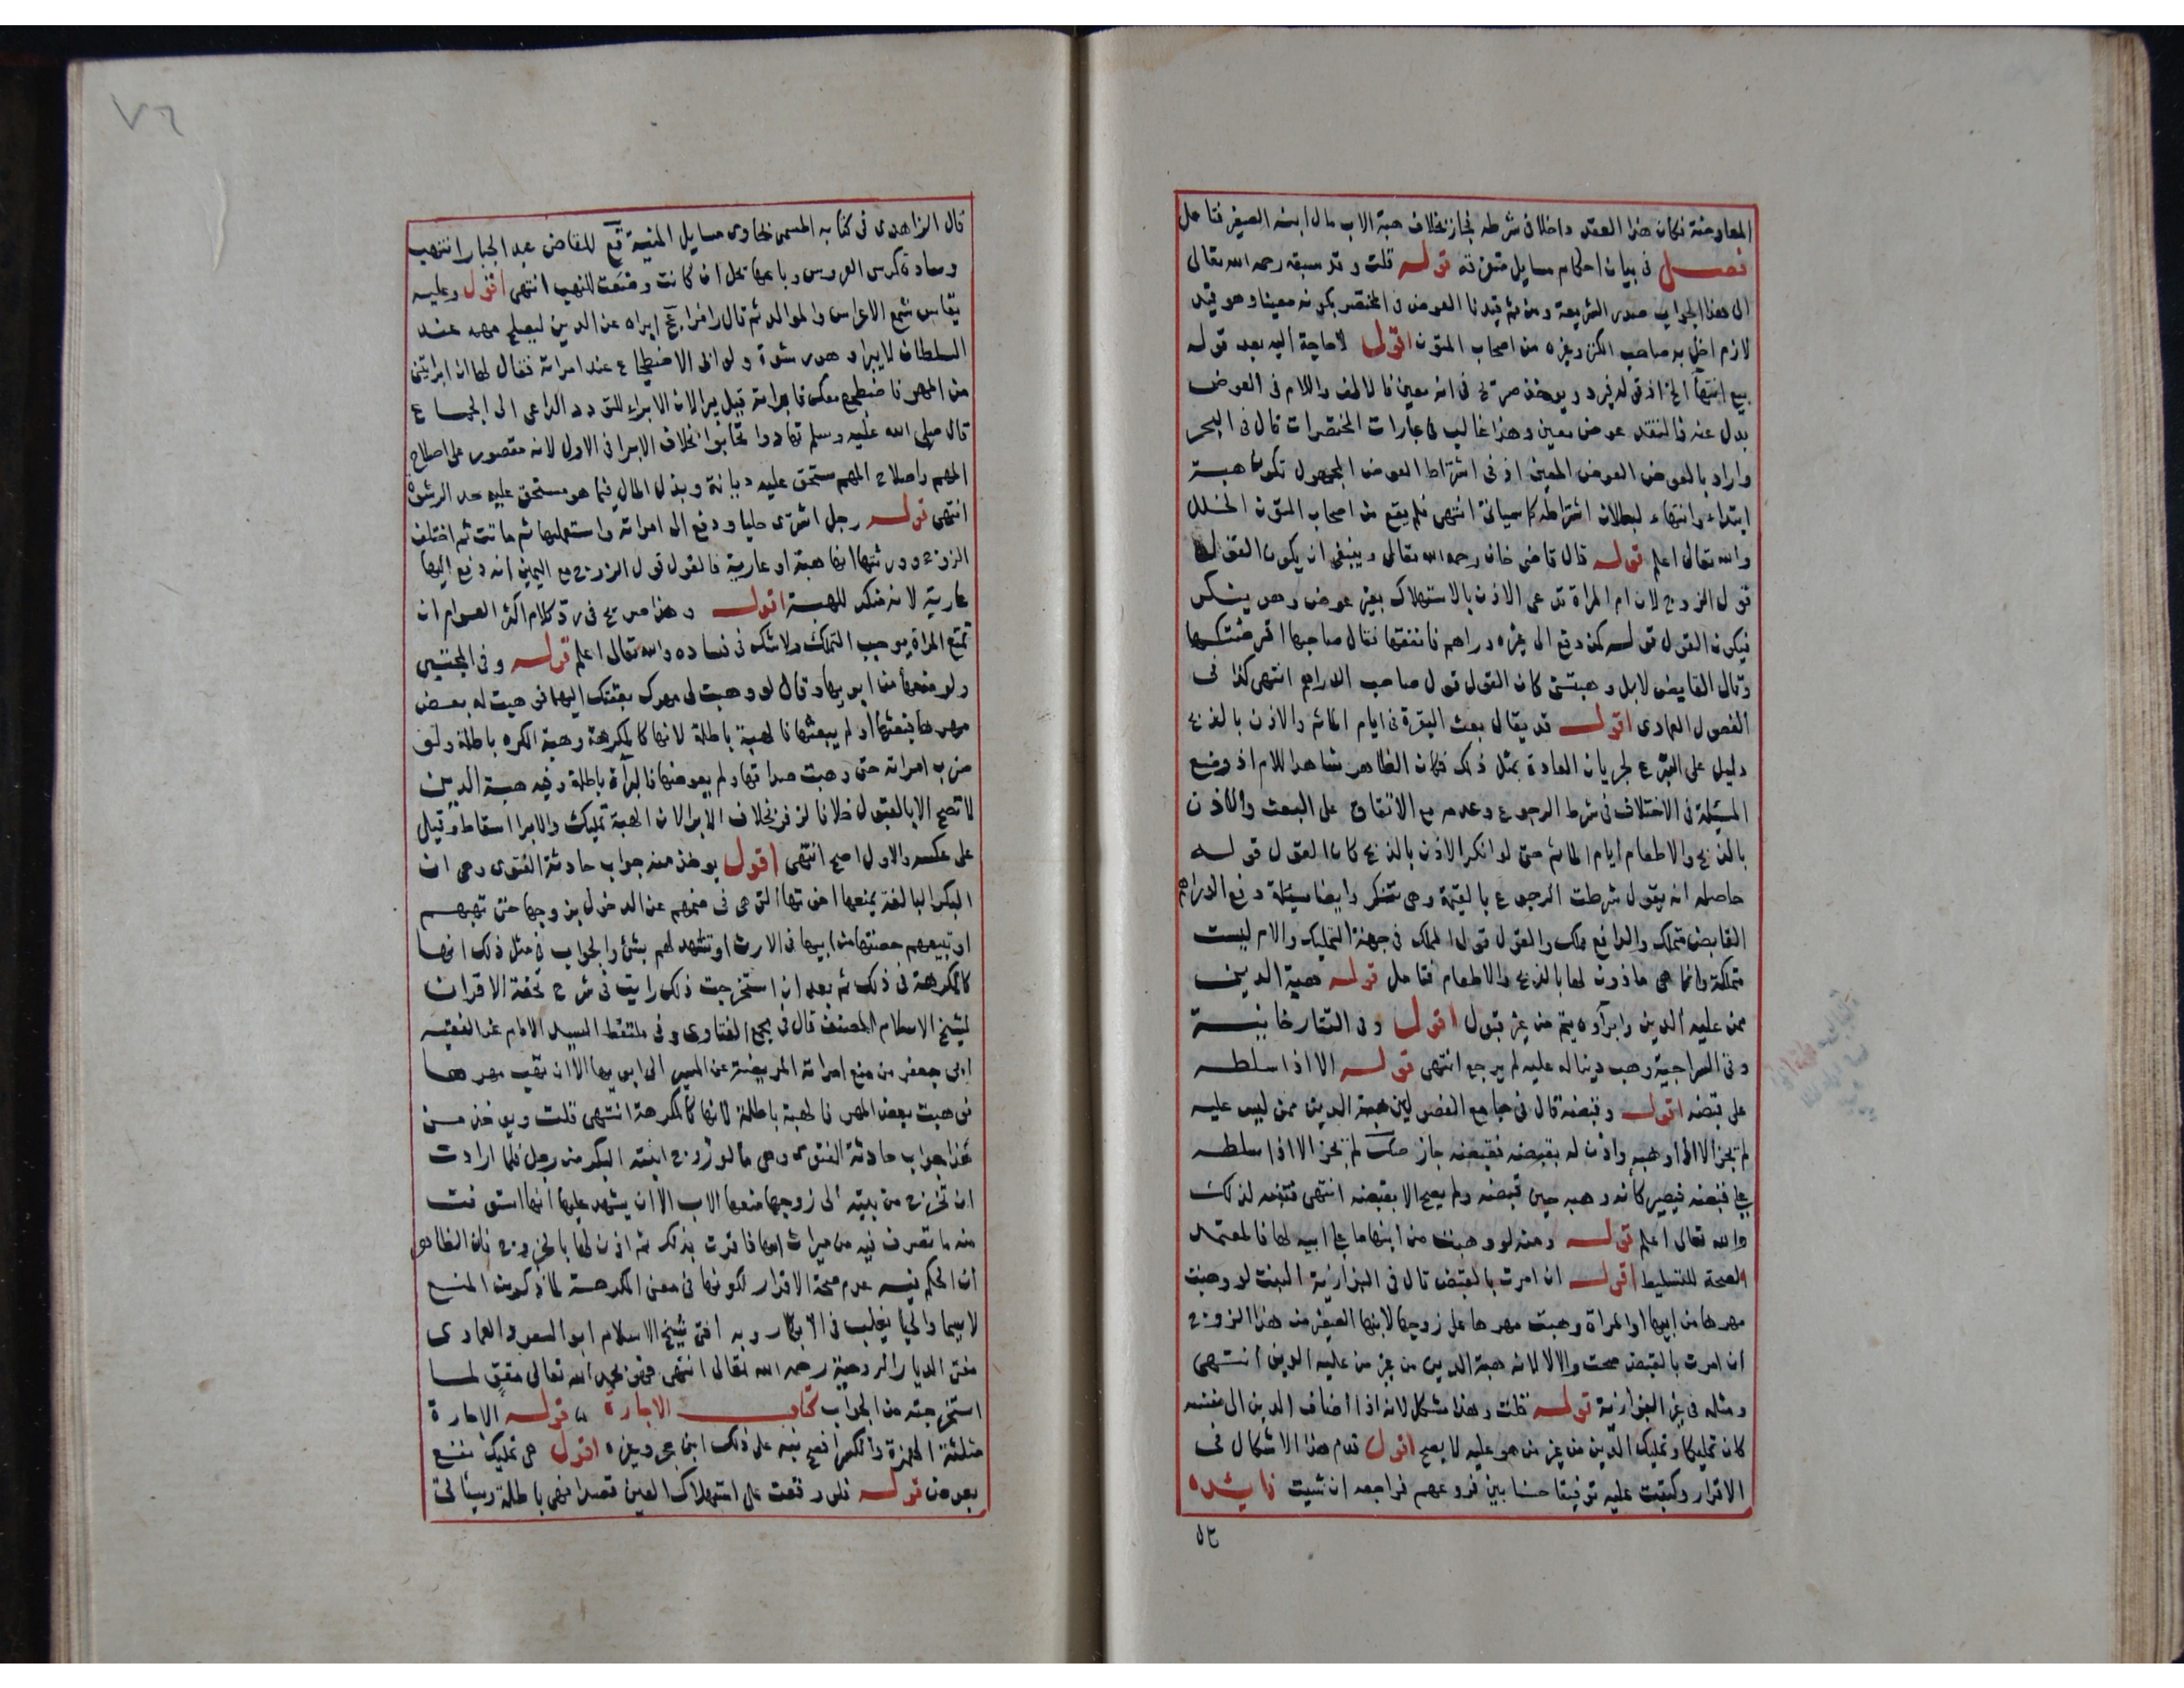 المعاوضة فكان هذا العقد داخلا في شرطه فجاز بخلاف هبة الاب مال ابنه الصغير فتامل
فصل في بيان احكام مسايل متفرقة قوله قلت وقد سبقه رحمه الله تعالى
الى هذا الجواب صدر الشريعة ومن ثم قيدنا العوض في المختصر بكونه معينا وهو قيد
لازم اخل به صاحب الكنز وغيره من اصحاب المتون اقول لا حاجة اليه بعد قوله
بيع انتهاً الخ اذ قوله فيرد ويوخذ صريح في انه معين فالالف واللام في العوض
بدل عنه فالتقدير عوض معين وهذا غالب في عبارات المختصرات قال في البحر
واراد بالعوض العوض المعين اذ في اشتراط العوض المجهول تكون هبة
ابتداء وانتهاء لبطلان اشتراطه كما سياتى انتهى فلم يقع من اصحاب المتون الخلل
والله تعالى اعلم قوله قال قاضى خان رحمه الله تعالى وينبغى ان يكون القول
قول الزوج لان ام المراة تدعى الاذن بالاستهلاك بغير عوض وهو ينكر
فيكون القول قوله كمن دفع الى غيره دراهم فانفقها فقال صاحبها اقرضتكها
وقال القابض لا بل وهبتنى كان القول قول صاحب الدراهم انتهى كذا في
الفصول العمادى اقول قد يقال بعث البقرة في ايام الماتم والاذن بالذبح
دليل على التبرع لجريان العادة بمثل ذلك فكان الظاهر شاهدا للام اذ وضع
المسئلة في الاختلاف في شرط الرجوع وعدمه مع الاتفاق على البعث والاذن
بالذبح والاطعام ايام الماتم حتى لو انكر الاذن بالذبح كان القول قوله
حاصله انه يقول شرطت الرجوع بالقيمة وهى تنكر وايضا مسئلة دفع الدراهم
القابض متملك والدافع مملك والقول قول المملك في جهة التمليك والام ليست
متملكة وانما هى ماذون لها بالذبح والاطعام فتامل قوله هبة الدين
ممن عليه الدين وابراوه يتم من غير قبول اقول وفى التتارخانية
وفى السراجية وهب دينا له عليه لم يرجع انتهى قوله الا اذا سلطه
على قبضه اقول وقبضه قال في جامع الفصولين هبة الدين ممن ليس عليه
لم تجز الا اذا وهبه واذن له بقبضه فقبضه جاز صك لم تجز الا اذا سلطه
على قبضه فيصير كأنه وهبه حين قبضه ولم يصح الا بقبضه انتهى فتنبه لذلك
والله تعالى اعلم قوله ومنه لو وهبت من ابنها ما على ابيه لها فالمعتمد
الصحة للتسليط اقول ان امرت بالقبض قال في البزازية البنت لو وهبت
مهرها من ابيها او المراة وهبت مهرها على زوجها لابنها الصغير من هذا الزوج
ان امرت بالقبض صحت والا لا لانه هبة الدين من غير من عليه الدين انتهى
ومثله في غير البزازية قوله قلت وهذا مشكل لانه اذا اضاف الدين الى نفسه
كان تمليكا وتمليك الدين من غير من هو عليه لا يصح اقول قدم هذا الاشكال في
الاقرار وكتبت عليه توفيقا حسنا بين فروعهم فراجعه ان شيت فايده
قال
٧٦
قال الزاهدى في كتابه المسمى بحاوى مسايل المنية قع للقاضى عبد الجبار انتهب
وسادة كرسى العروس وباعها تحل ان كانت وضعت للنهب انتهى اقول وعليه
يقاس شمع الاعراس والموالد ثم قال رامزا عخ ابراه عن الدين ليصلح مهمه عند
السلطان لا يبرا وهو رشوة ولو ابى الاضطجاع عند امراته فقال لها ان ابراتينى
من المهر فاضطجع معك فابراته قيل يبرا لان الابراء للتودد الداعى الى الجماع
قال صلى الله عليه وسلم تهادوا تحابوا بخلاف الابرا في الاول لانه مقصور على اصلاح
المهم واصلاح المهم مستحق عليه ديانة وبذل المال فيما هو مستحق عليه حد الرشوة
انتهى قوله رجل اشترى حليا ودفع الى امراته واستعملها ثم ماتت ثم اختلف
الزوج وورثتها انها هبة او عارية فالقول قول الزوج مع اليمين انه دفع اليها
عارية لانه منكر للهبة اقول وهذا صريح في رد كلام اكثر العوام ان
تمتع المراة يوجب التمليك ولا شك في فساده والله تعالى اعلم قوله وفى المجتبى
ولو منعها من ابويها وقال لو وهبت لى مهرك بعثتك اليهما فوهبت له بعض
مهرها فبعثها او لم يبعثها فالهبة باطلة لانها كالمكرهة وهبة المكره باطلة ولو
ضرب امراته حتى وهبت صداقها ولم يعوضها فالبرآة باطلة وفيه هبة الدين
لا تصح الا بالقبول خلافا لزفر بخلاف الابرا لان الهبة تمليك والابرا اسقاط وقيل
على عكسه والاول اصح انتهى اقول يوخذ منه جواب حادثة الفتوى وهى ان
البكر البالغة يمنعها اخوتها التى هى في ضمهم عن الدخول بزوجها حتى تهبهم
او تبيعهم حصتها من ابيها في الارث او تشهد لهم بشئ والجواب في مثل ذلك انها
كالمكرهة في ذلك ثم بعد ان استخرجت ذلك رايت في شرح تحفة الاقران
لشيخ الاسلام المصنف قال في مجمع الفتاوى وفى ملتقط السيد الامام عن الفقيه
ابى جعفر من منع امراته المريضة عن المسير الى ابويها الا ان تهب مهرها
فوهبت بعض المهر فالهبة باطلة لانها كالمكرهة انتهى قلت ويوخذ من
هذا جواب حادثة الفتوى وهى ما لو زوج ابنته البكر من رجل فلما ارادت
ان تخرج من بيته الى زوجها منعها الاب الا ان يشهد عليها انها استوفت
منه ما تصرف فيه من ميراث امها فاقرت بذلك ثم اذن لها بالخروج فان الظاهر
ان الحكم فيه عدم صحة الاقرار لكونها في معنى المكرهة لما ذكر من المنع
لا سيما والحيا يغلب في الابكار وبه افتى شيخ الاسلام ابو السعود العمادى
مفتى الديار الرومية رحمه الله تعالى انتهى فهو بحمد الله تعالى مقوٍ لما
استخرجته من الجواب كتاب الاجارة قوله الاجارة
مثلثة الهمزة والكسر افصح نبه على ذلك ابن حجر وغيره اقول هى تمليك نفع
بعوض قوله فلو وقعت على استهلاك العين قصدا فهى باطلة وسياتى